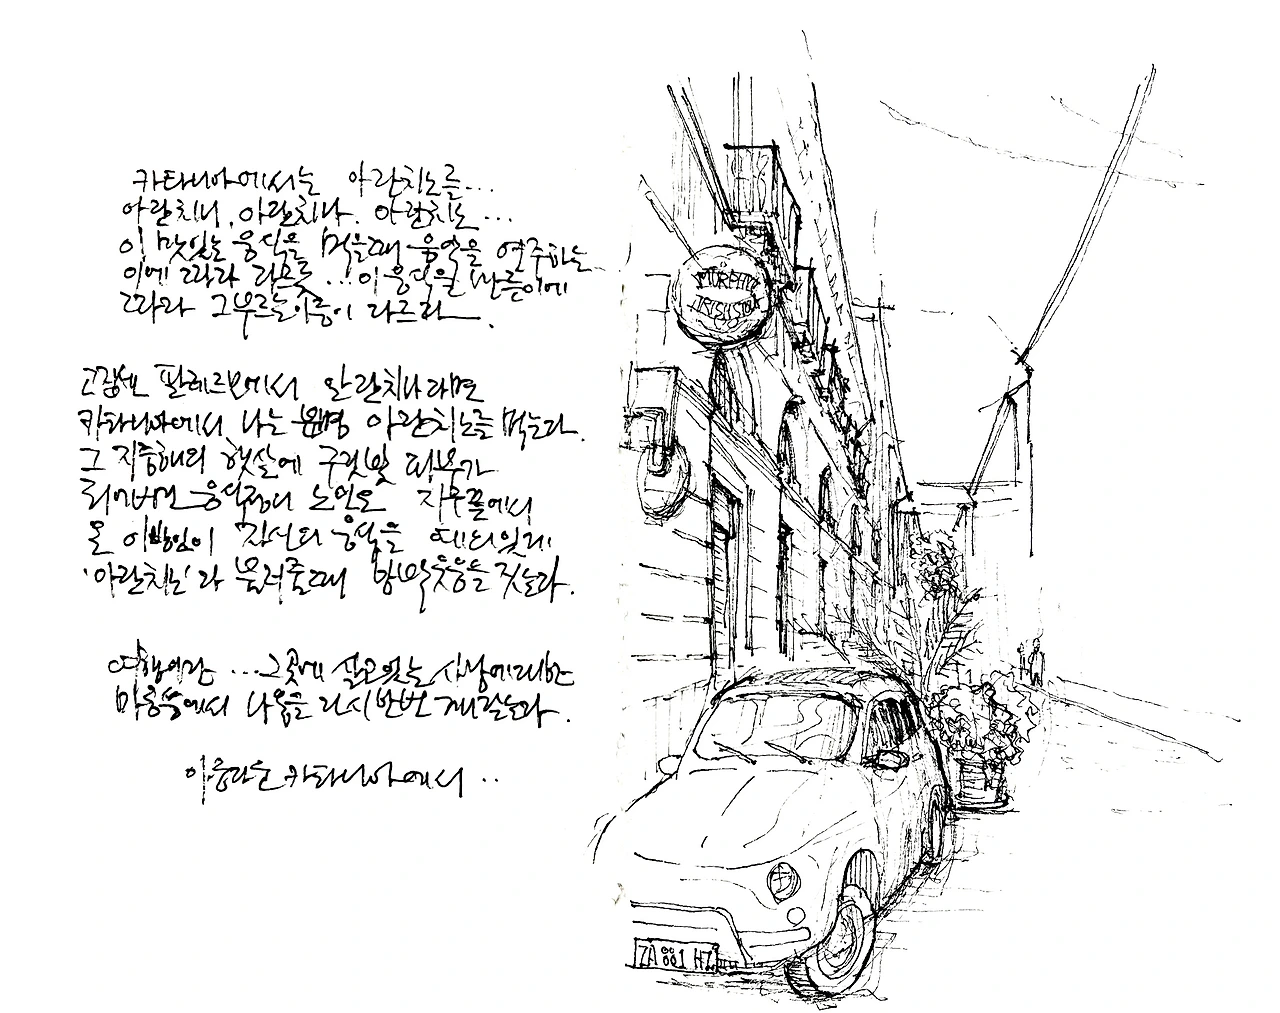 카타니아에서는 아란치노를...
아란치니, 아란치나, 아란치노...
이 맛있는 음식을 먹을때 음악을 연주하는
이에 따라 다르듯...이 음식을 만든이에
따라 그부르는이름이 다르다.
팔레르모에서 아란치나라면
카타니아에서 나는 분명 아란치노를 먹는다.
그 지중해의 햇살에 구릿빛 피부가
되어버린 음식점의 노인은 지구끝에서
온 이방인이 자신의 음식을 예의있게
'아란치노'라 불러줄때 함박웃음을 짓는다.
여행이란 ...그곳에 살고있는 사람에대한
마음속에서 나옴을 다시한번 깨닫는다.
아름다운 카타니아에서..
MURPHY'S
IRISH
ZA 881 HZ